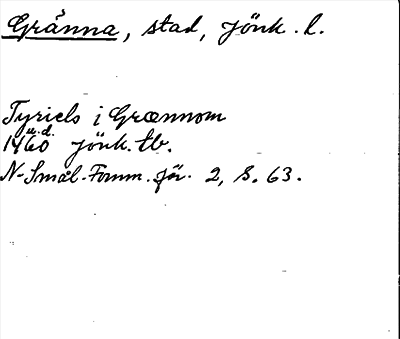 Gränna, stad, Jönk. l.
Tyriels i Grænnom
u.d.
1460 Jönk. tb.
N-Smål. Fornm. för. 2, s. 63.